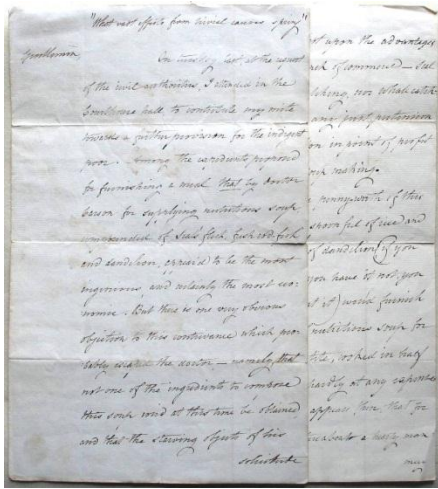 "What vast effects from trivial causes spring"
Gentlemen
On tuesday last, at the request
of the civil authorities, I attended in the
Courthouse hall, to contribute my mite
towards a further provision for the indigent
poor. Among the expedients proposed
for furnishing a meal that by Doctor
for supplying nutritious soup
compounded of Seals flesh, fresh cod fish
and dandelion, appear'd to be the most
ingenious, and the most eco
nomic. But there is one very obvious
objection to this contrivance which pro
bably escaped the doctor — namely, that
not one of the ingredients to compose
this soup could at this time be obtained
and that the starving objects of his
solicitude
upon the advantages
of commerce — Seal
nor Whale catch
any
in point of profit
making.
pennyworth of this
spoonful of rice and
of dandelion (if you
you have it not, you
it) would furnish
nutritious soup for
cooked in half
hardly at any expence
appears then, that for
a man
may